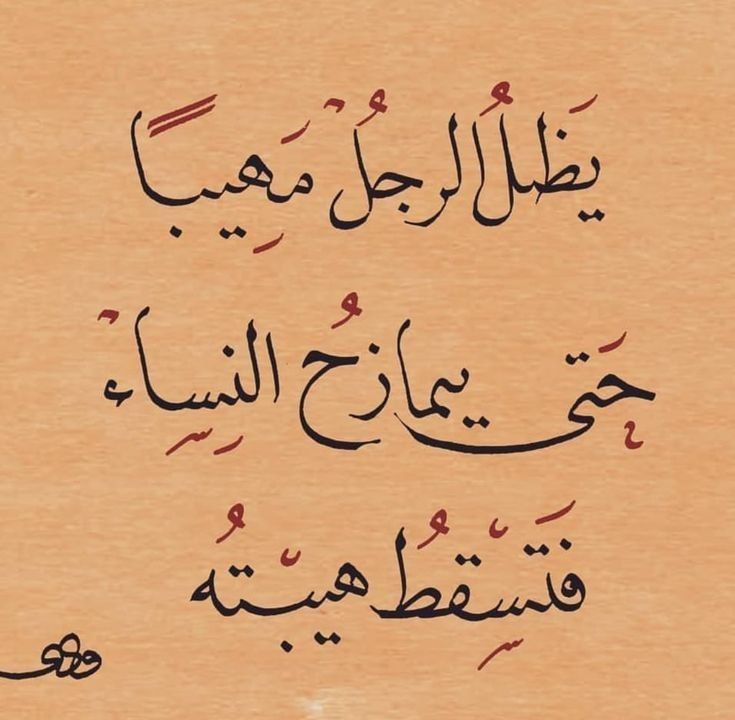 يَظلُ الرجلُ مَهِيباً
حتى يمازحُ النِساء
فَتَسْقِطُ هيبْتهُ